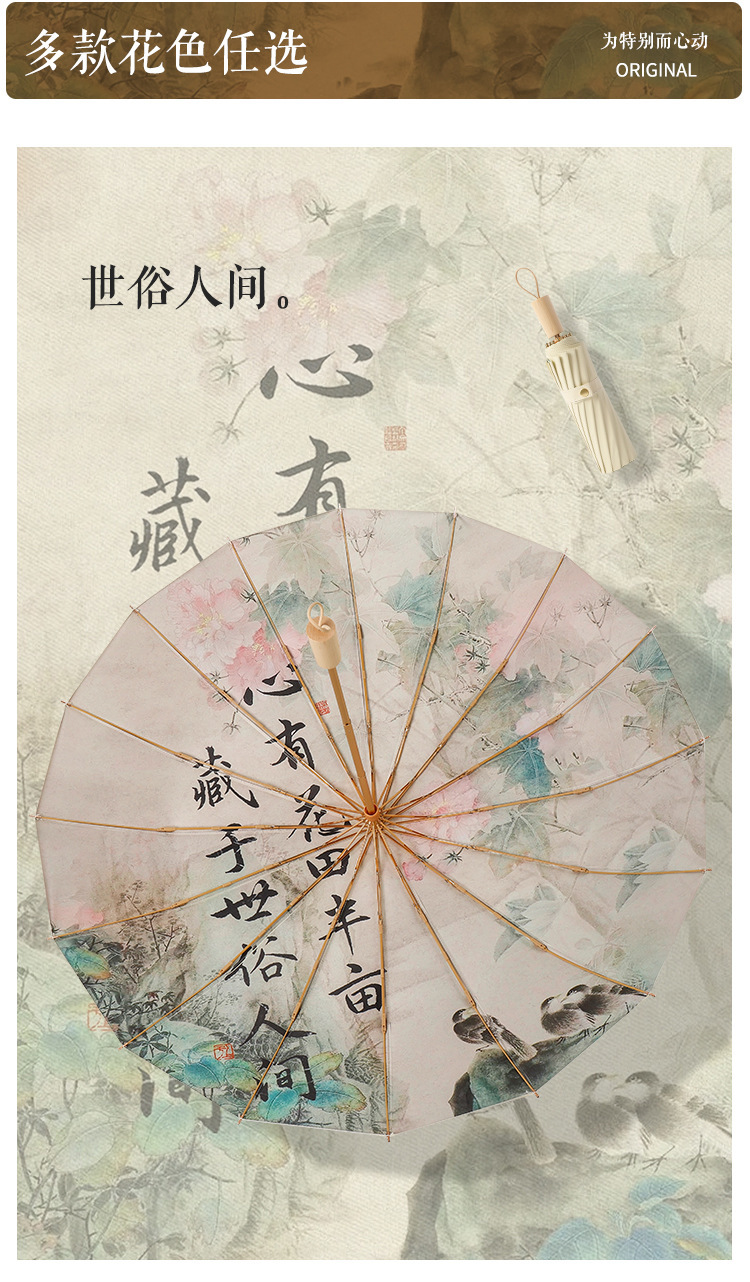 多款花色任选
为特别而心动
ORIGINAL
世俗人间。
心有
藏
间
心有花田半亩
藏于世俗人间